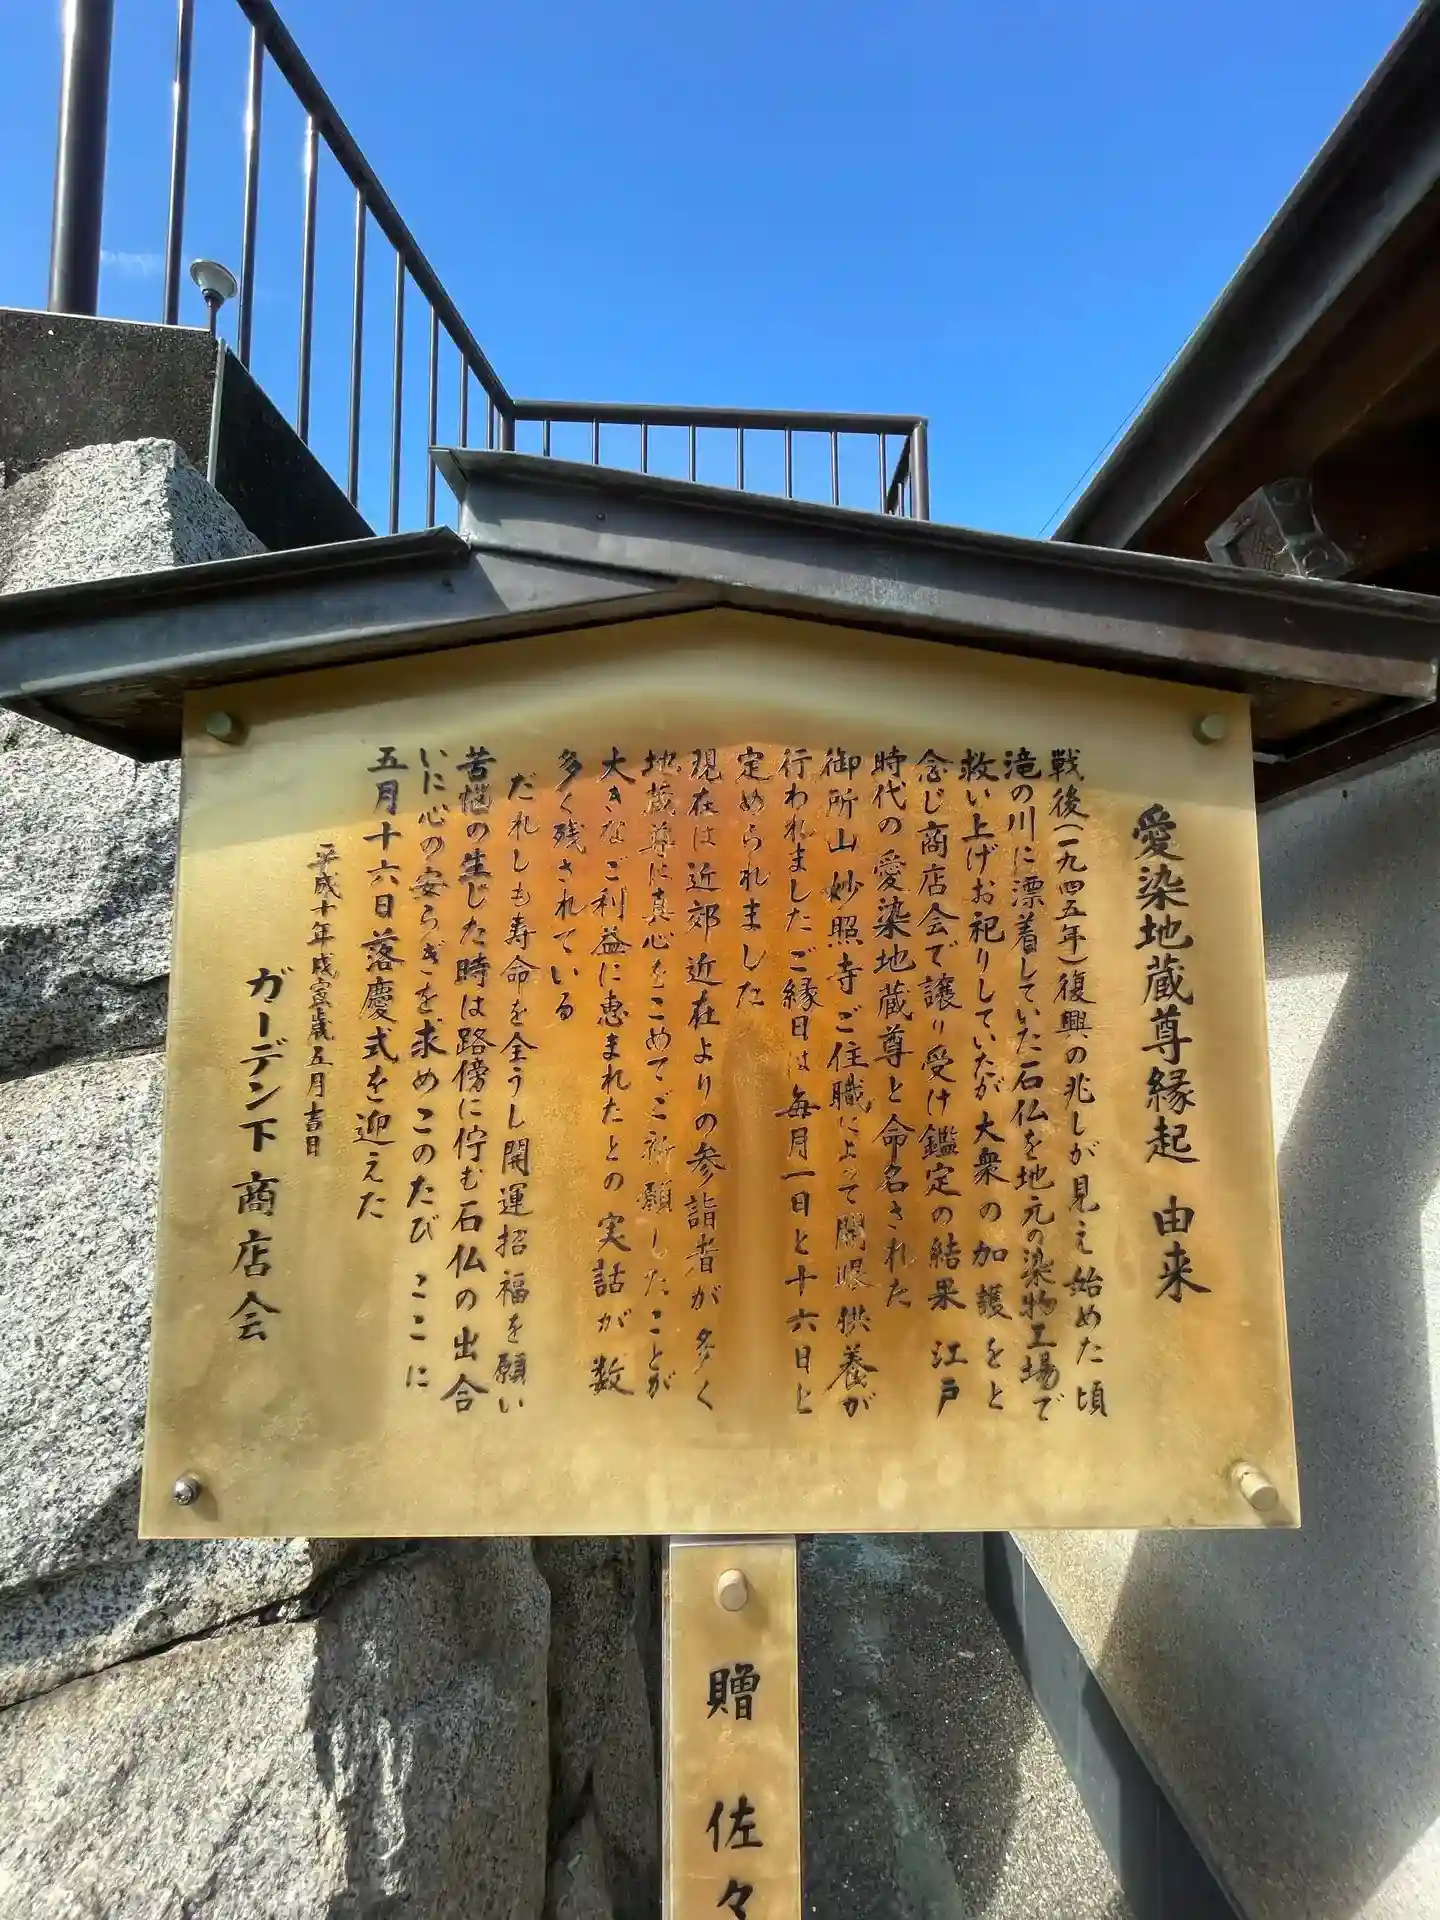 愛染地蔵尊縁起 由来
戦後(一九四五年)復興の兆しが見え始めた頃
滝の川に漂着していた石仏を地元の染物工場で
救い上げお祀りしていたが大衆の加護をと
念じ商店会で譲り受け鑑定の結果 江戸
時代の愛染地蔵尊と命名された
御所山妙照寺ご住職によって開眼供養が
行われましたご縁日は毎月一日と十六日と
定められました
現在は近郊近在よりの参詣者が多く
地蔵尊に真心をこめてご祈願したことが
大きなご利益に恵まれたとの実話が数
多く残されている
だれしも寿命を全うし開運招福を願い
苦悩の生じた時は路傍に佇む石仏の出合
いに心の安らぎを求めこのたび ここに
五月十六日落慶式を迎えた
平成十年戊寅歳五月吉日
ガーデン下商店会
贈 佐々